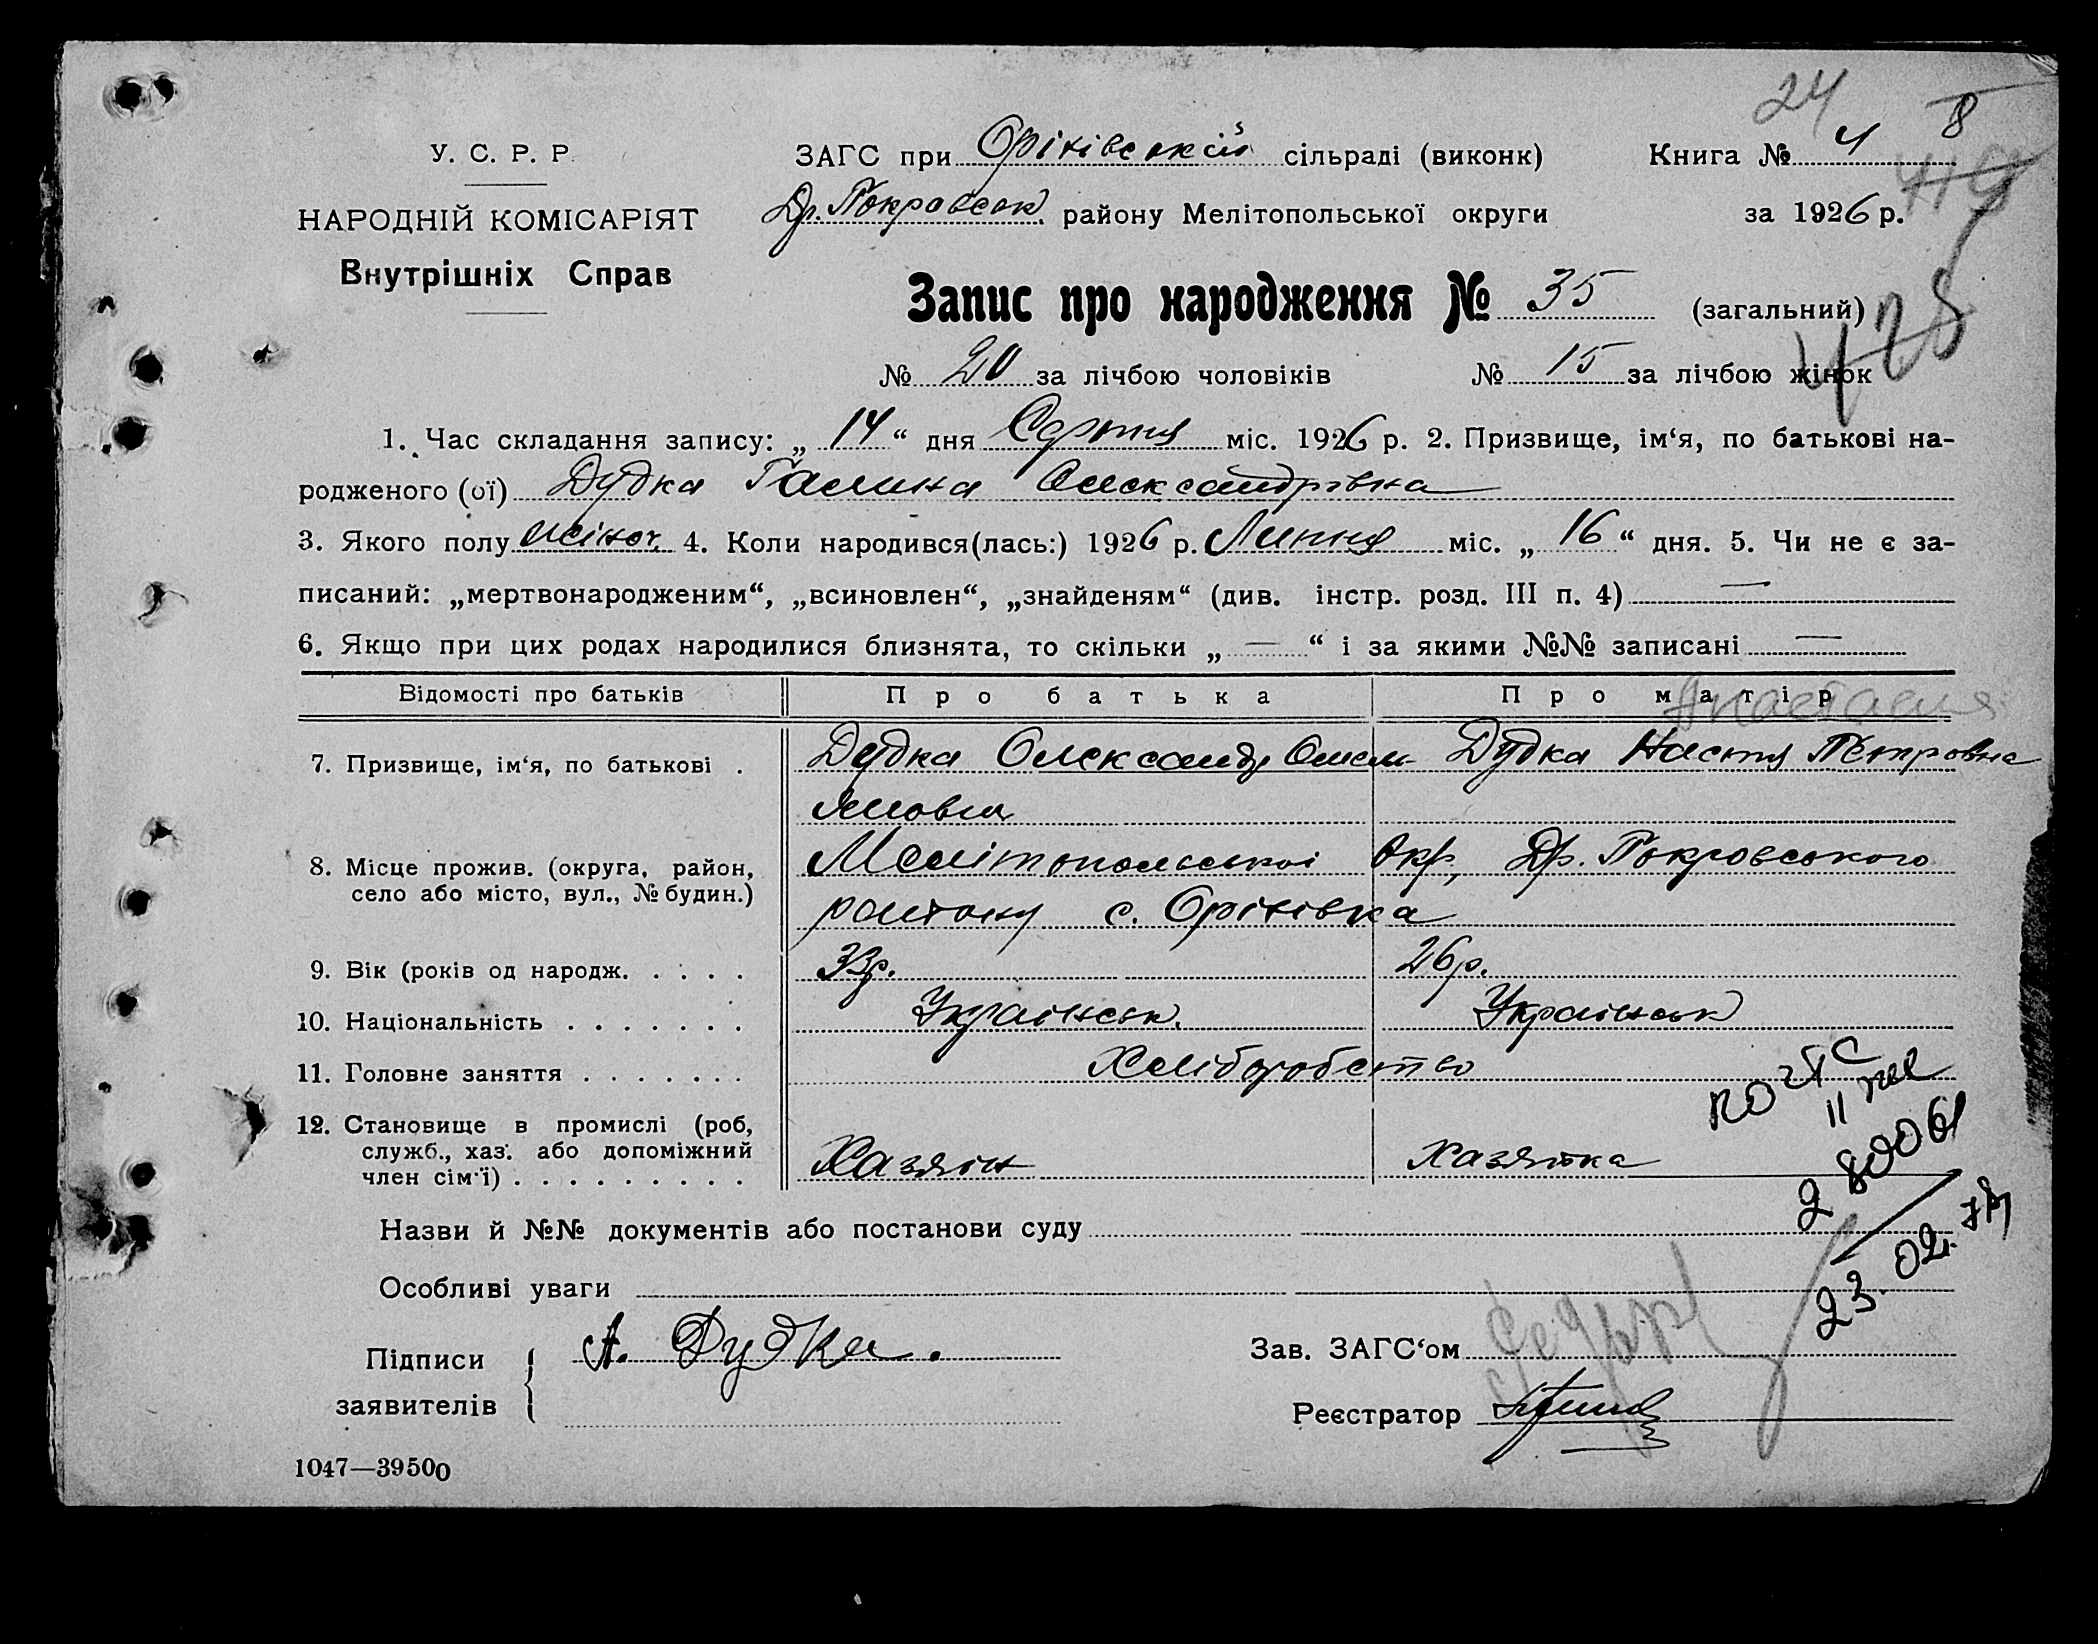 24
8
У. С. Р. Р.
ЗАГС при Орінівській сільраді (виконк)
Книга № 4
НАРОДНІЙ КОМІСАРІЯТ
Др. Покровськ. району Мелітопольської округи
за 1926 р.
Внутрішніх Справ
Запис про народження № 35 (загальний)
№ 20 за лічбою чоловіків № 15 за лічбою жінок
1. Час складання запису: „ 14 “ дня Серпня міс. 1926 р. 2. Призвище, ім‘я, по батькові на-
родженого (ої) Дудка Галина Олександрівна
3. Якого полу жіноч. 4. Коли народився(лась:) 1926 р. Липня міс. „ 16 “ дня. 5. Чи не є за-
писаний: „мертвонародженим“, „всиновлен“, „знайденям“ (див. інстр. розд. III п. 4) —
6. Якщо при цих родах народилися близнята, то скільки „ — “ і за якими №№ записані —
Відомості про батьків
Про батька
Про матір
Анастасия
7. Призвище, ім‘я, по батькові .
Дудка Олександр Омель-
яновіч
Дудка Настя Петровна
8. Місце прожив. (округа, район,
село або місто, вул., № будин.)
Мелітопольської Окр, Др. Покровського
району с. Орінівка
9. Вік (років од народж. . . . .
33р.
26р.
10. Національність . . . . . . .
Українськ.
Українськ
11. Головне заняття . . . . . . .
Хліборобство
12. Становище в промислі (роб,
служб., хаз. або допоміжний
член сім‘ї) . . . . . . . . .
Хазяін
Хазяйка
Назви й №№ документів або постанови суду
Особливі уваги
Підписи
заявителів
А. Дудка.
Зав. ЗАГС‘ом
Реєстратор
1047—39500